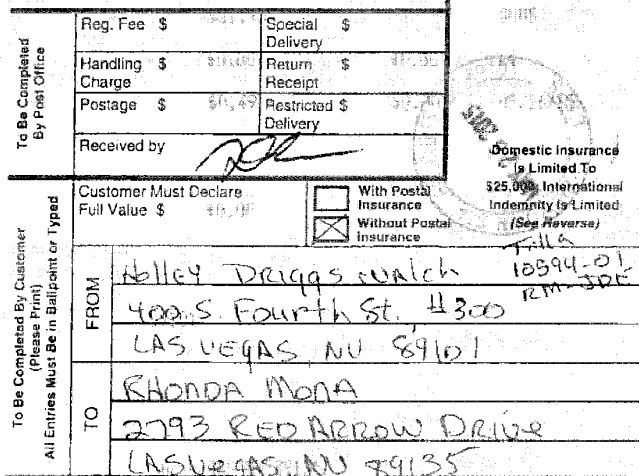 To Be Completed
By Post Office
Reg. Fee $
Special $
Delivery
Handling $
Charge
Return $
Receipt
Postage $ $0.49
Restricted $
Delivery
Received by
Domestic Insurance
Is Limited To
$25,000; International
Indemnity Is Limited
(See Reverse)
To Be Completed By Customer
(Please Print)
All Entries Must Be in Ballpoint or Typed
Customer Must Declare
Full Value $
With Postal
Insurance
Without Postal
Insurance
10594-01
RM-JDF
FROM
Holley Driggs Walch
400 S. Fourth St. #300
LAS VEGAS, NV 89101
TO
RHONDA MONA
2793 RED ARROW DRIVE
LAS VEGAS NV 89135